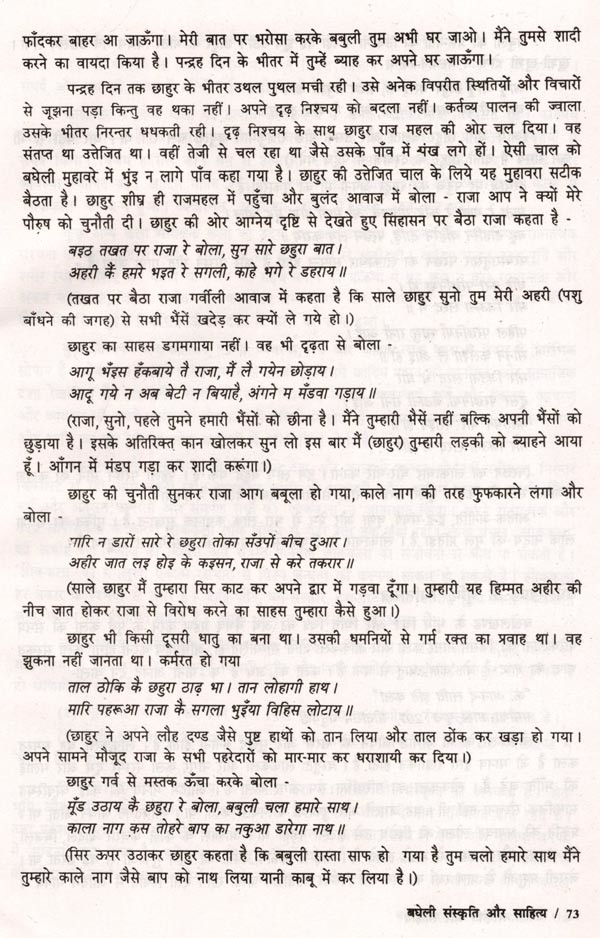 फाँदकर बाहर आ जाऊँगा। मेरी बात पर भरोसा करके बबुली तुम अभी घर जाओ। मैंने तुमसे शादी
करने का वायदा किया है। पन्द्रह दिन के भीतर में तुम्हें ब्याह कर अपने घर जाऊँगा।
पन्द्रह दिन तक छाहुर के भीतर उथल पुथल मची रही। उसे अनेक विपरीत स्थितियों और विचारों
से जूझना पड़ा किन्तु वह थका नहीं। अपने दृढ़ निश्चय को बदला नहीं। कर्तव्य पालन की ज्वाला
उसके भीतर निरन्तर धधकती रही। दृढ़ निश्चय के साथ छाहुर राज महल की ओर चल दिया। वह
संतप्त था उत्तेजित था। वहीं तेजी से चल रहा था जैसे उसके पाँव में पंख लगे हों। ऐसी चाल को
बघेली मुहावरे में भुंइ न लागे पाँव कहा गया है। छाहुर की उत्तेजित चाल के लिये यह मुहावरा सटीक
बैठता है। छाहुर शीघ्र ही राजमहल में पहुँचा और बुलंद आवाज में बोला - राजा आप ने क्यों मेरे
पौरुष को चुनौती दी। छाहुर की ओर आग्नेय दृष्टि से देखते हुए सिंहासन पर बैठा राजा कहता है -
बइठ तखत पर राजा रे बोला, सुन सारे छहुरा बात।
अहरी कैं हमरे भइत रे सगली, काहे भगे रे डहराय॥
(तखत पर बैठा राजा गर्वीली आवाज में कहता है कि साले छाहुर सुनो तुम मेरी अहरी (पशु
बाँधने की जगह) से सभी भैंसें खदेड़ कर क्यों ले गये हो।)
छाहुर का साहस डगमगाया नहीं। वह भी दृढ़ता से बोला -
आगू भँइस हँकबाये तै राजा, मैं लै गयेन छोड़ाय।
आदू गये न अब बेटी न बियाहै, अंगने म मँडवा गड़ाय॥
(राजा, सुनो, पहले तुमने हमारी भैंसों को छीना है। मैंने तुम्हारी भैसें नहीं बल्कि अपनी भैंसों को
छुड़ाया है। इसके अतिरिक्त कान खोलकर सुन लो इस बार मैं (छाहुर) तुम्हारी लड़की को ब्याहने आया
हूँ। आँगन में मंडप गड़ा कर शादी करूंगा।)
छाहुर की चुनौती सुनकर राजा आग बबूला हो गया, काले नाग की तरह फुफकारने लंगा और
बोला -
गारि न डारों सारे रे छहुरा तोका सँउपों बीच दुआर।
अहीर जात लइ होइ के कइसन, राजा से करे तकरार॥
(साले छाहुर मैं तुम्हारा सिर काट कर अपने द्वार में गड़वा दूँगा। तुम्हारी यह हिम्मत अहीर की
नीच जात होकर राजा से विरोध करने का साहस तुम्हारा कैसे हुआ।)
छाहुर भी किसी दूसरी धातु का बना था। उसकी धमनियों से गर्म रक्त का प्रवाह था। वह
झुकना नहीं जानता था। कर्मरत हो गया
ताल ठोकि कै छहुरा ठाढ़ भा। तान लोहागी हाथ।
मारि पहरूआ राजा कै सगला भुइँया विहिस लोटाय॥
(छाहुर ने अपने लौह दण्ड जैसे पुष्ट हाथों को तान लिया और ताल ठोंक कर खड़ा हो गया।
अपने सामने मौजूद राजा के सभी पहरेदारों को मार-मार कर धराशायी कर दिया।)
छाहुर गर्व से मस्तक ऊँचा करके बोला -
मूँड उठाय कै छहुरा रे बोला, बबुली चला हमारे साथ।
काला नाग कस तोहरे बाप का नकुआ डारेगा नाथ॥
(सिर ऊपर उठाकर छाहुर कहता है कि बबुली रास्ता साफ हो गया है तुम चलो हमारे साथ मैंने
तुम्हारे काले नाग जैसे बाप को नाथ लिया यानी काबू में कर लिया है।)
बघेली संस्कृति और साहित्य / 73